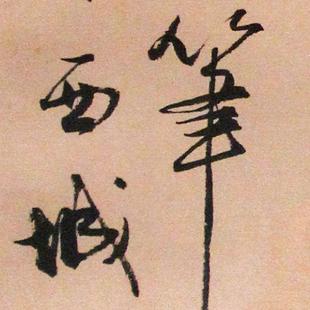 筆
西城